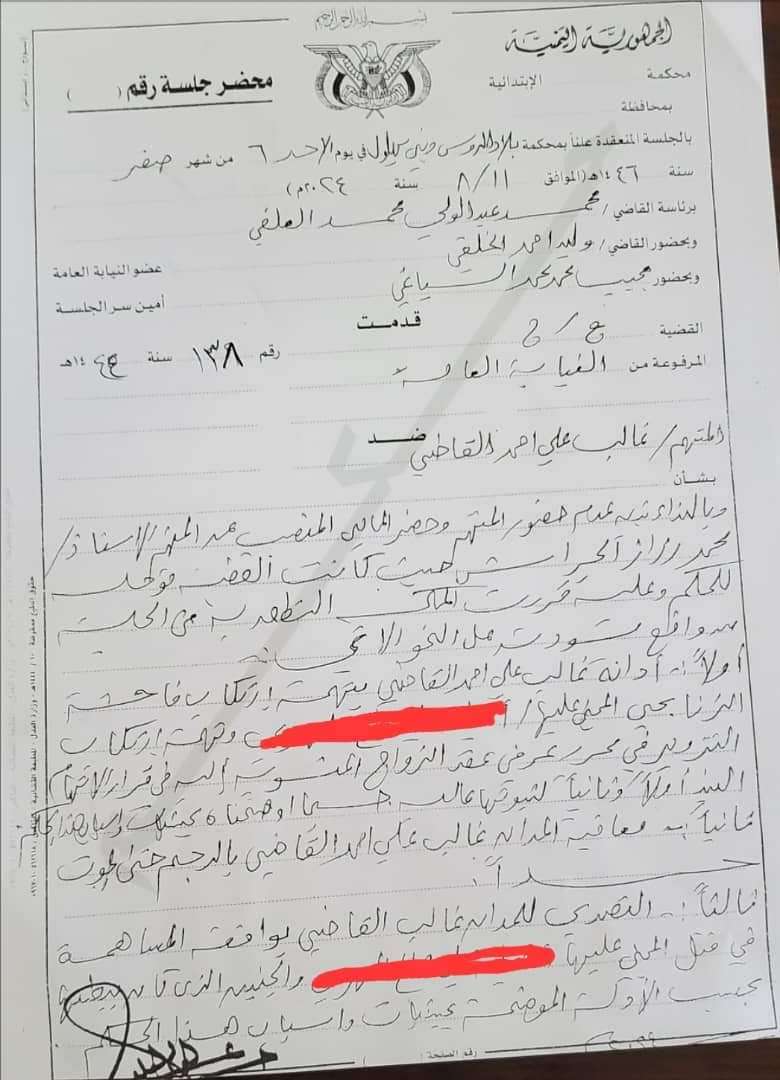 بسم الله الرحمن الرحيم
الجمهورية اليمنية
محكمة الإبتدائية
محضر جلسة رقم ( )
بمحافظة
بالجلسة المنعقدة علناً بمحكمة بلاد الروس وبني بهلول في يوم الاحد ٦ من شهر صفر
سنة ١٤٤٦هـ (الموافق ٨/١١ سنة ٢٠٢٤م)
برئاسة القاضي / محمد عبدالولي محمد العلفي
وبحضور القاضي / وليد احمد الخلقي عضو النيابة العامة
وبحضور مجيب محمد محمد السياغي أمين سر الجلسة
قدمت
القضية ج/ج رقم ١٣٨ سنة ١٤٤٥هـ
المرفوعة من النيابة العامة
ضد
المتهم / غالب علي احمد القاضي
بشأن
وبالنداء تبين عدم حضور المتهم وحضر المحامي المنصب عن المتهم الاستاذ /
محمد الحراشي حيث كانت القضية مؤجلة
للحكم وعليه قررت المحكمة النطق به من الجلسة
من واقع مسودته على النحو الاتي :
أولاً :- أدانة غالب علي احمد القاضي بتهمة ارتكاب فاحشة
الزنا بحق المجني عليها / وتهمة ارتكاب
التزوير في محرر عرفي عقد الزواج المنسوبة إليه في قرار الاتهام
البند أولاً وثانياً لثبوتها عليه حسبما اوضحناه بحيثيات واسباب هذا الحكم
ثانياً :- معاقبة المدان غالب علي احمد القاضي بالرجم حتى الموت
حداً .
ثالثاً :- التصدي للمدان غالب القاضي بواقعة المساهمة
في قتل المجني عليها والجنين الذي كان ببطنها
بحسب الأدلة الموضحة بحيثيات واسباب هذا الحكم
رقم الصفحة ( )